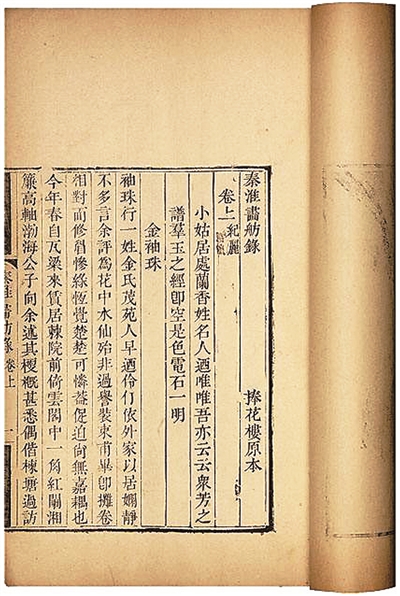 秦淮畫舫錄 捧花樓原本
卷上 紀麗
小姑居處蘭香姓名人迺唯唯吾亦云云眾芳之
譜羣玉之經卽空是色電石一明
金袖珠
袖珠行一姓金氏茂苑人早迺伶仃依外家以居嫺靜
不多言余評為花中水仙殆非過譽裝束甫畢卽攤卷
相對而修眉慘綠恆覺楚楚可憐葢促迫向無嘉耦也
今年春自瓦梁來賃居棘院前倚雲閣中一角紅闌湘
簾高軸渤海公子向余述其梗槪甚悉偶偕棟塘過訪
秦淮畫舫錄 卷上 一